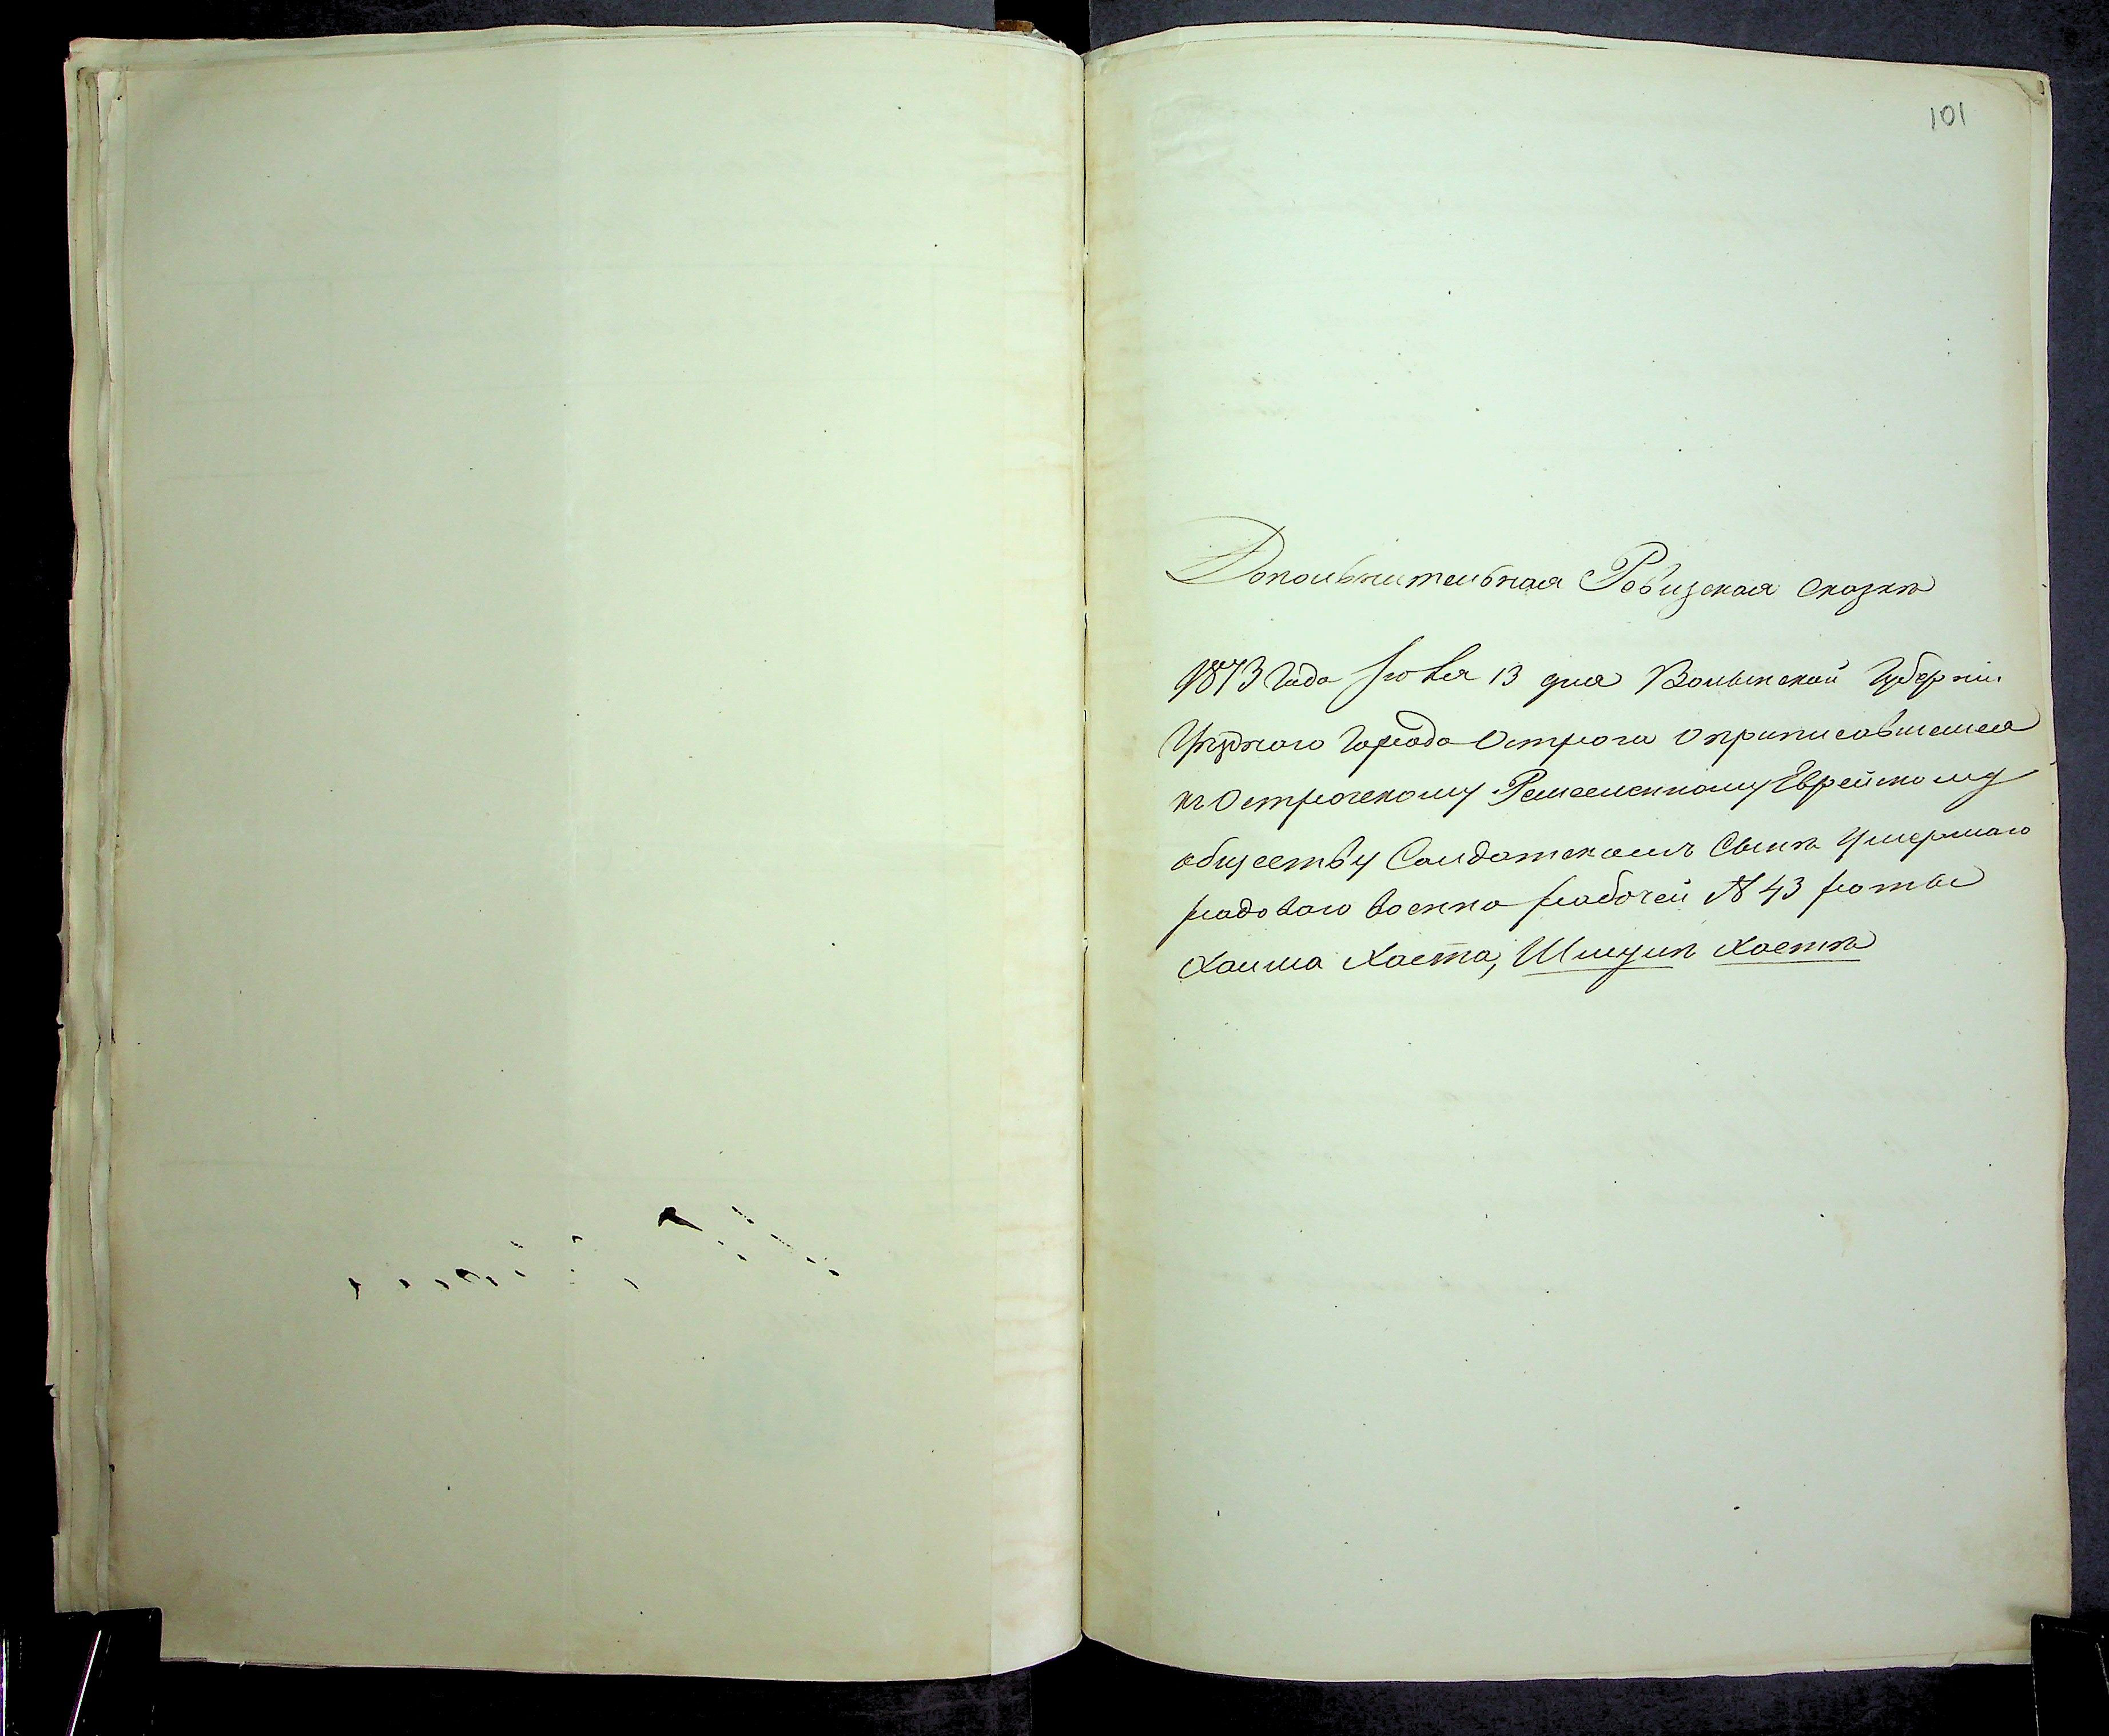 101
Дополънителъная Ревизская сказка
1873 года Июля 13 дня Волынской Губернiи
Уезднаго Города Острога о приписавшемся
къ Острогскому Ремесленному Еврейскому
обществу Солдатскомъ Сынѣ умершаго
рядоваго военно рабочей N 43 роты
Хаима Хаета, Шмуля Хаета